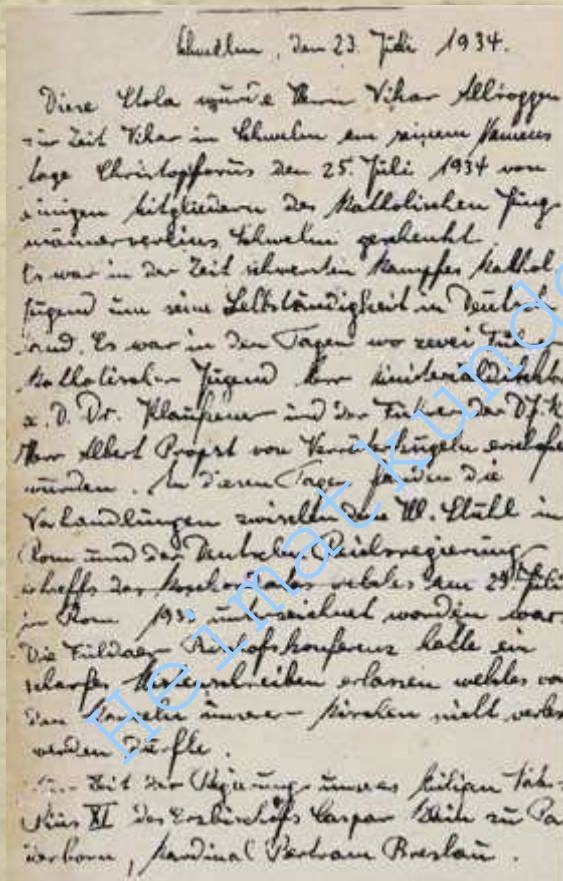 Schwelm, den 23. Juli 1934.
Diese Stola wurde Herrn Vikar Albroggen
zur Zeit Vikar in Schwelm an seinem Namens
tage Christopforus den 25. Juli 1934 von
einigen Mitgliedern des Katholischen Jung
männervereins Schwelm geschenkt
Es war in der Zeit schwersten Kampfes kathol.
Jugend um seine Selbständigkeit in Deutsch
land. Es war in den Tagen wo zwei
Katholischer Jugend Herr Ministerialdirektor
a. D. Dr. Klausener und der Führer der DJK
Herr Albert Propst von erschossen
wurden. In diesen Tagen fanden die
Verhandlungen zwischen dem Hl. Stuhl in
Rom und der Deutschen Reichsregierung
betreffs des Konkordates welches am Juli
in Rom 1933 unterzeichnet worden war.
Die Fuldaer Bischofskonferenz hatte ein
scharfes Hirtenschreiben erlassen welches von
den Kanzeln unserer Kirchen nicht verles
werden durfte.
Zur Zeit der Regierung unseres heiligen
Pius XI des Erzbischofs Caspar Klein zu Pa
derborn, Kardinal Bertram Breslau.
Heimatkunde